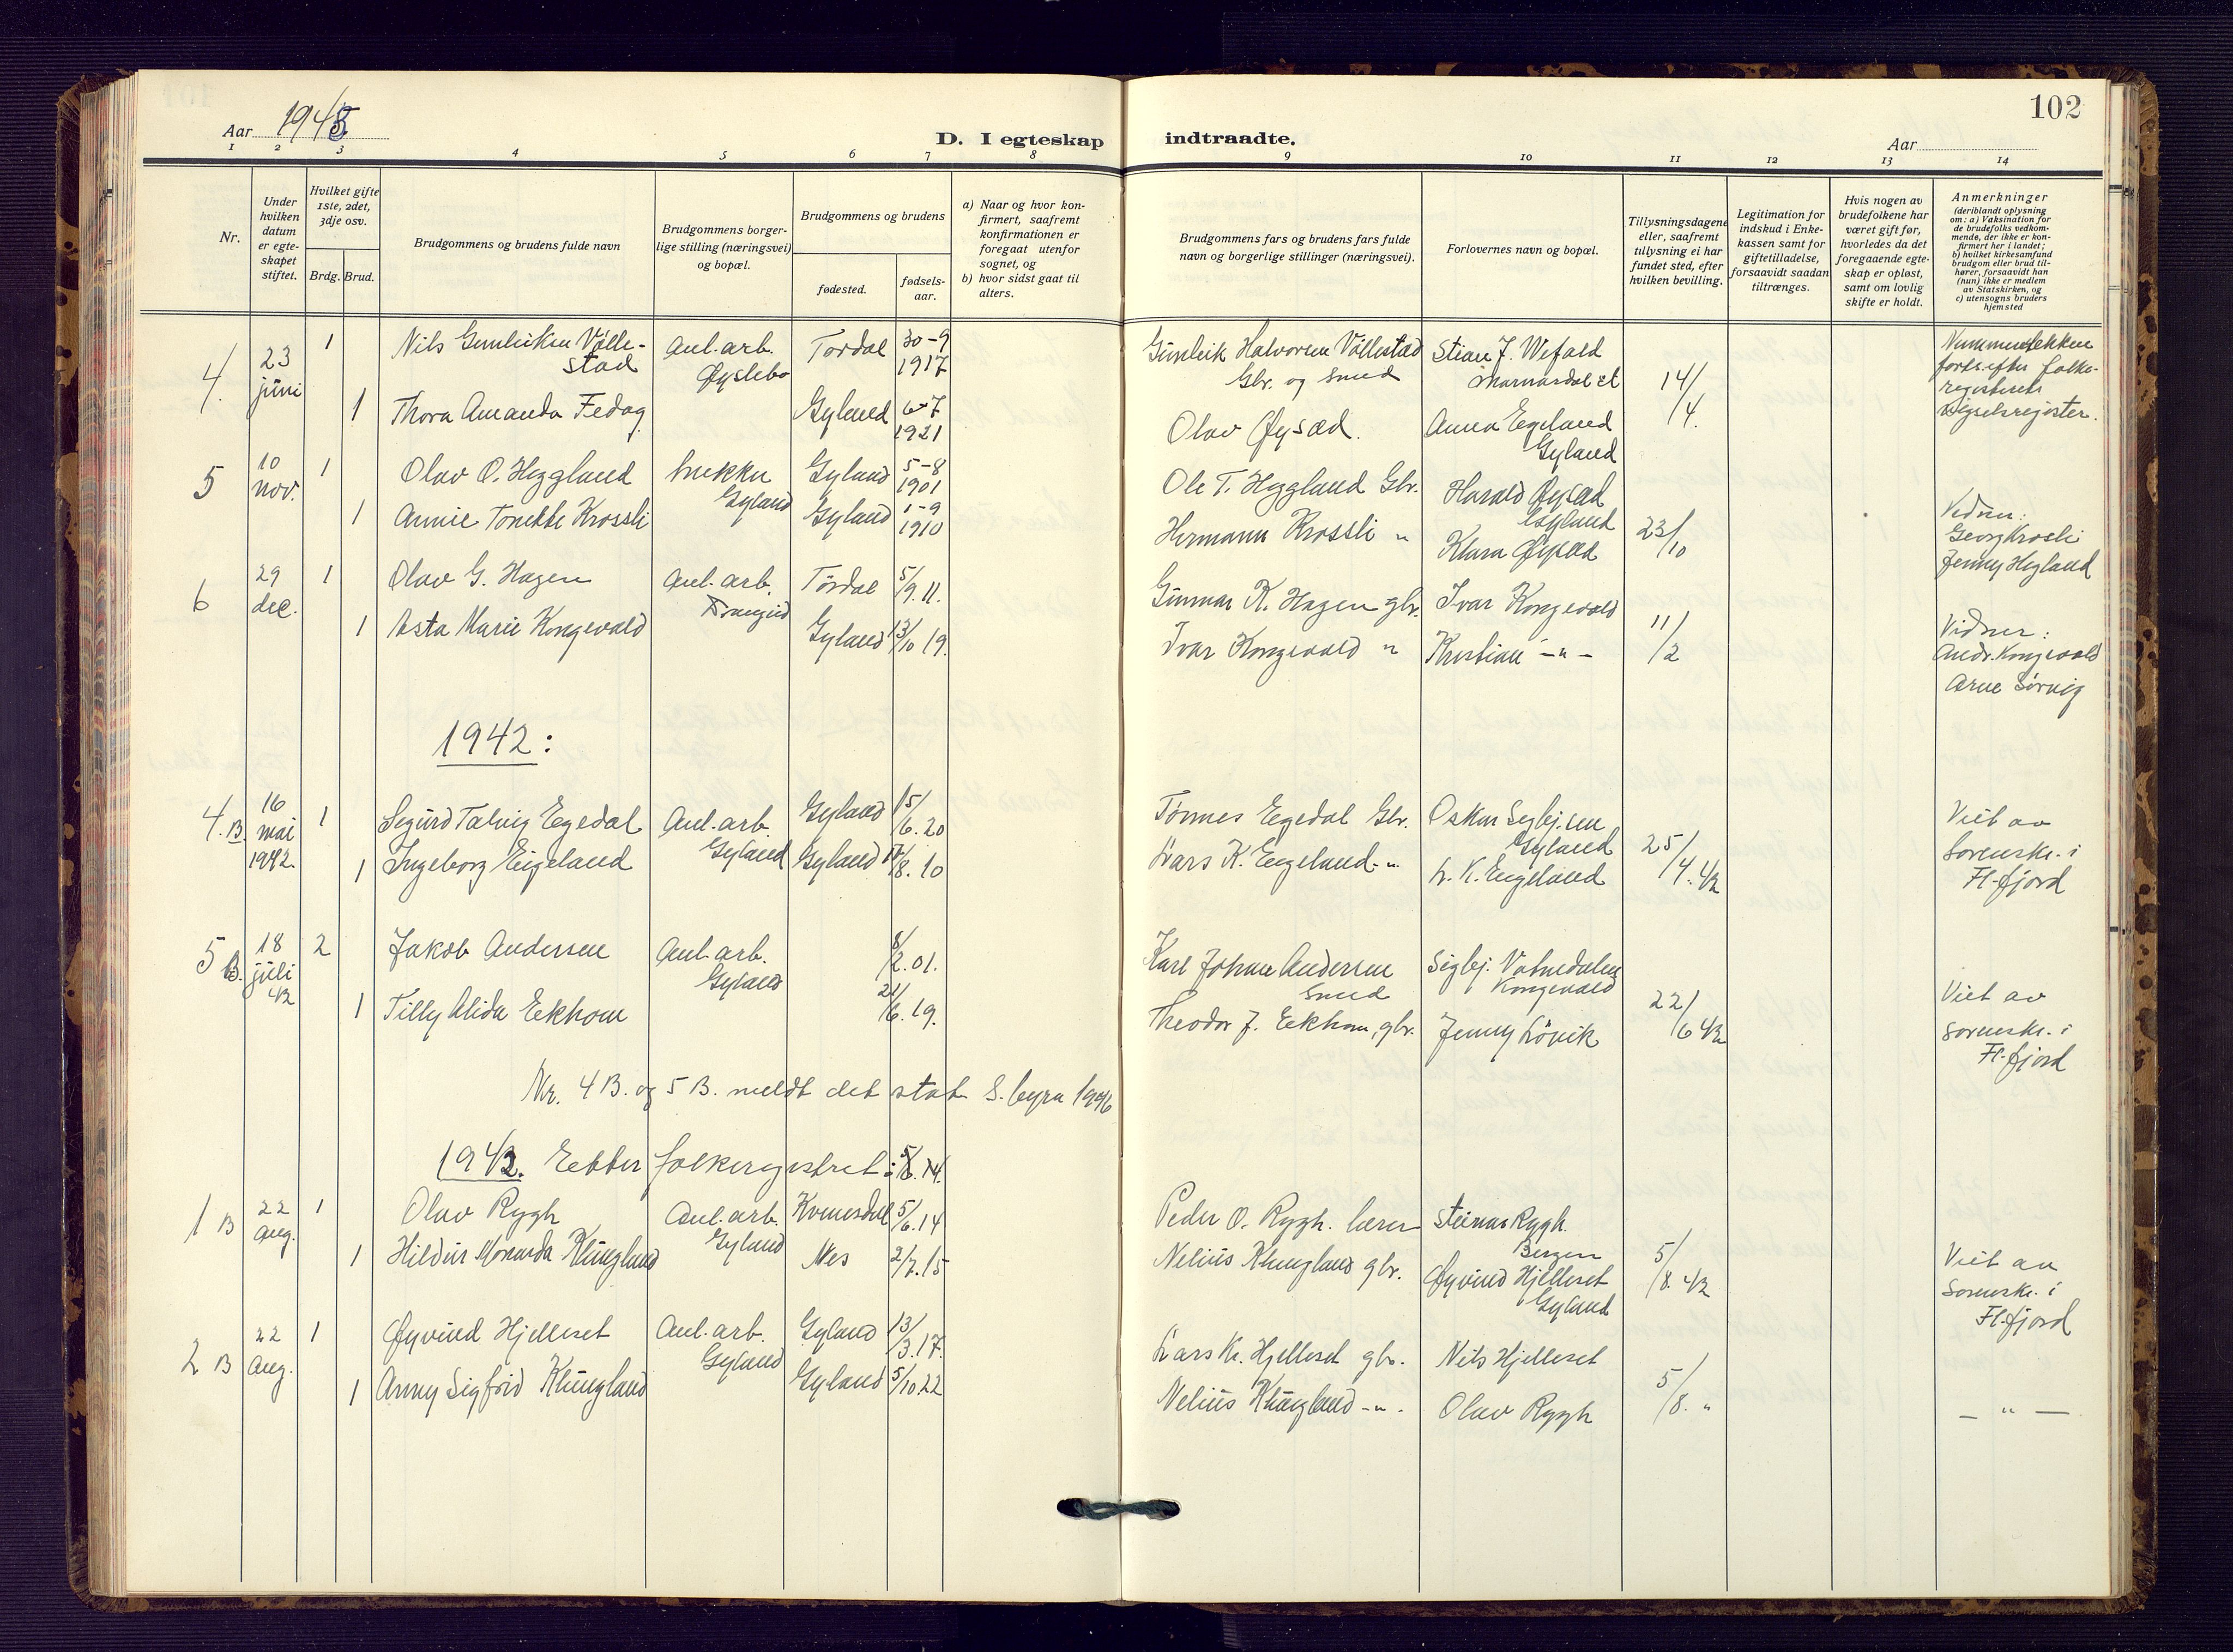 102
Aar 1945
D. I egteskap indtraadte.
Aar
1 2 3 4 5 6 7 8 9 10 11 12 13 14
Nr.
Under hvilken datum er egteskapet stiftet.
Hvilket gifte 1ste, 2det, 3dje osv.
Brdg. Brud.
Brudgommens og brudens fulde navn
Brudgommens borgerlige stilling (næringsvei) og bopæl.
Brudgommens og brudens
fødested.
fødsels-aar.
a) Naar og hvor konfirmert, saafremt konfirmationen er foregaat utenfor sognet, og
b) hvor sidst gaat til alters.
Brudgommens fars og brudens fars fulde navn og borgerlige stillinger (næringsvei).
Forlovernes navn og bopæl.
Tillysningsdagene eller, saafremt tillysning ei har fundet sted, efter hvilken bevilling.
Legitimation for indskud i Enkekassen samt for giftetilladelse, forsaavidt saadan tiltrænges.
Hvis nogen av brudefolkene har været gift før, hvorledes da det foregaaende egteskap er opløst, samt om lovlig skifte er holdt.
Anmerkninger
(deriblandt oplysning om: a) Vaksination for de brudefolks vedkommende, der ikke er konfirmert her i landet; b) hvilket kirkesamfund brudgom eller brud tilhører, forsaavidt han (hun) ikke er medlem av Statskirken, og c) utensogns bruders hjemsted
4. 23 juni 1 Nils Gunleiksen Vålle-stad Anl. arb. Øyslebø Tørdal 30-9 1917 Gunleik Halvorsen Vållestad Gbr. og smed Stian J. Wefald Marnardal st 14/4.
Thora Amanda Fedog 1 Gyland 6-7 1921 Olav Øysæd. Anna Eigeland Gyland
efter folke-registerets vigselsregister.
5 10 nov. 1 Olav O. Heggland Gyland Gyland 5-8 1901 Ole T. Heggland Gbr. Harald Øysæd Gyland 23/10
1 Annie Tonette Krossli Gyland 1-9 1910 Hermann Krossli " Klara Øysæd
Vidner:
Georg Krosli
Jenny Hegland
6 29 dec. 1 Olav G. Hagen Anl. arb. Drangeid Tørdal 5/9. 11. Gunnar K. Hagen gbr. Ivar Kongevold 11/2
1 Asta Marie Kongevold Gyland 13/10 19. Ivar Kongevold " Kristian — " —
Vidner:
Andr. Kongevold
Arne Sørvig
1942:
4. B. 16 mai 1942. 1 Sigurd Talvig Egedal Anl. arb. Gyland Gyland 15/6. 20 Tønnes Egedal Gbr. Oskar Sigbj.sen Gyland 25/4. 42
1 Ingeborg Eigeland Gyland 17/8. 10 Lars K. Eigeland - " L. K. Eigeland
Viet av
Sorenskr. i
Fl-fjord
5 B. 18 juli 42 2 Jakob Andersen Anl. arb. Gyland 8/2. 01. Karl Johan Andersen Smed Sigbj. Vatnedalen Kongevold 22/6 42
1 Tilly Alida Eekhom 21/6. 19. Theodor J. Eekhom, gbr. Jenny Løvik
Viet av
sorenskr. i
Fl-fjord
Nr. 4 B. og 5 B. meldt det stat. S. byrå 1946
1942. Etter folkeregistret:
1 B 22 aug. 1 Olav Rygh Anl. arb. Gyland Kvinesdal 5/6. 14 Peder O. Rygh. lærer Steinar Rygh. Bergen 5/8. 42
1 Hildur Monarda Klungland Nes 2/7. 15 Nelius Klungland gbr. Øyvind Hjelleset Gyland
Viet av
Sorenskr. i
Fl-fjord
2 B 22 aug. 1 Øyvind Hjelleset Anl. arb. Gyland Gyland 13/3. 17. Lars K. Hjelleset gbr. Nils Hjelleset 5/8. "
1 Anny Sigfrid Klungland Gyland 5/10 22 Nelius Klungland - " - Olav Rygh
— " —